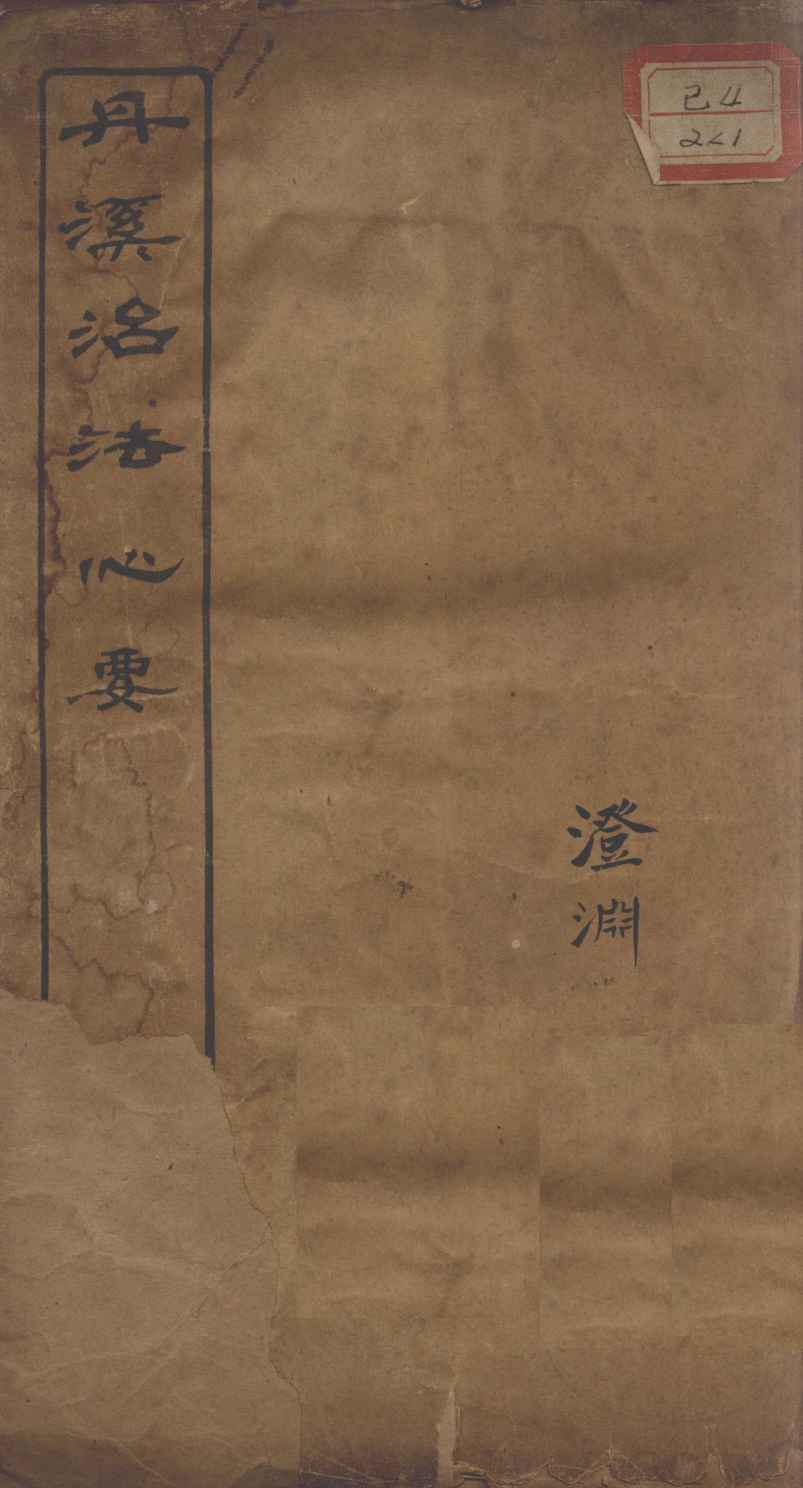 丹溪治法心要
澄淵
己4
2<1